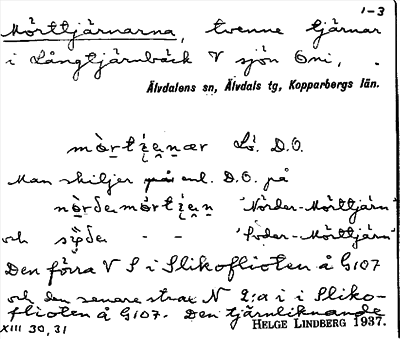 1-3
Mörttjärnarna, tvenne tjärnar
i Långtjärnbäck V sjön Oni,
Älvdalens sn, Älvdals tg, Kopparbergs län.
Lö. D.O.
Man skiljer på enl. D.O. på
"Norder-Mörttjärn"
och - - "Söder-Mörttjärn"
Den förra V S i Slikoflioten å G107
och den senare strax N 2:a i i Sliko-
flioten å G107. Den tjärnliknande
XIII 30, 31
HELGE LINDBERG 1937.